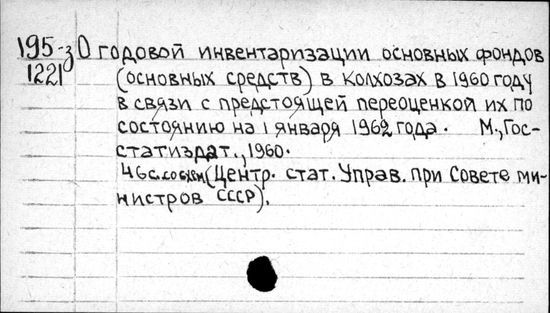 195-з О годовой инвентаризации основных фондов
1221 (основных средств) в колхозах в 1960 году
в связи с предстоящей переоценкой их по
состоянию на 1 января 1962 года. М., Гос-
статиздат., 1960.
46 с. со схем (Центр. стат. Управ. при Совете ми-
нистров СССР).